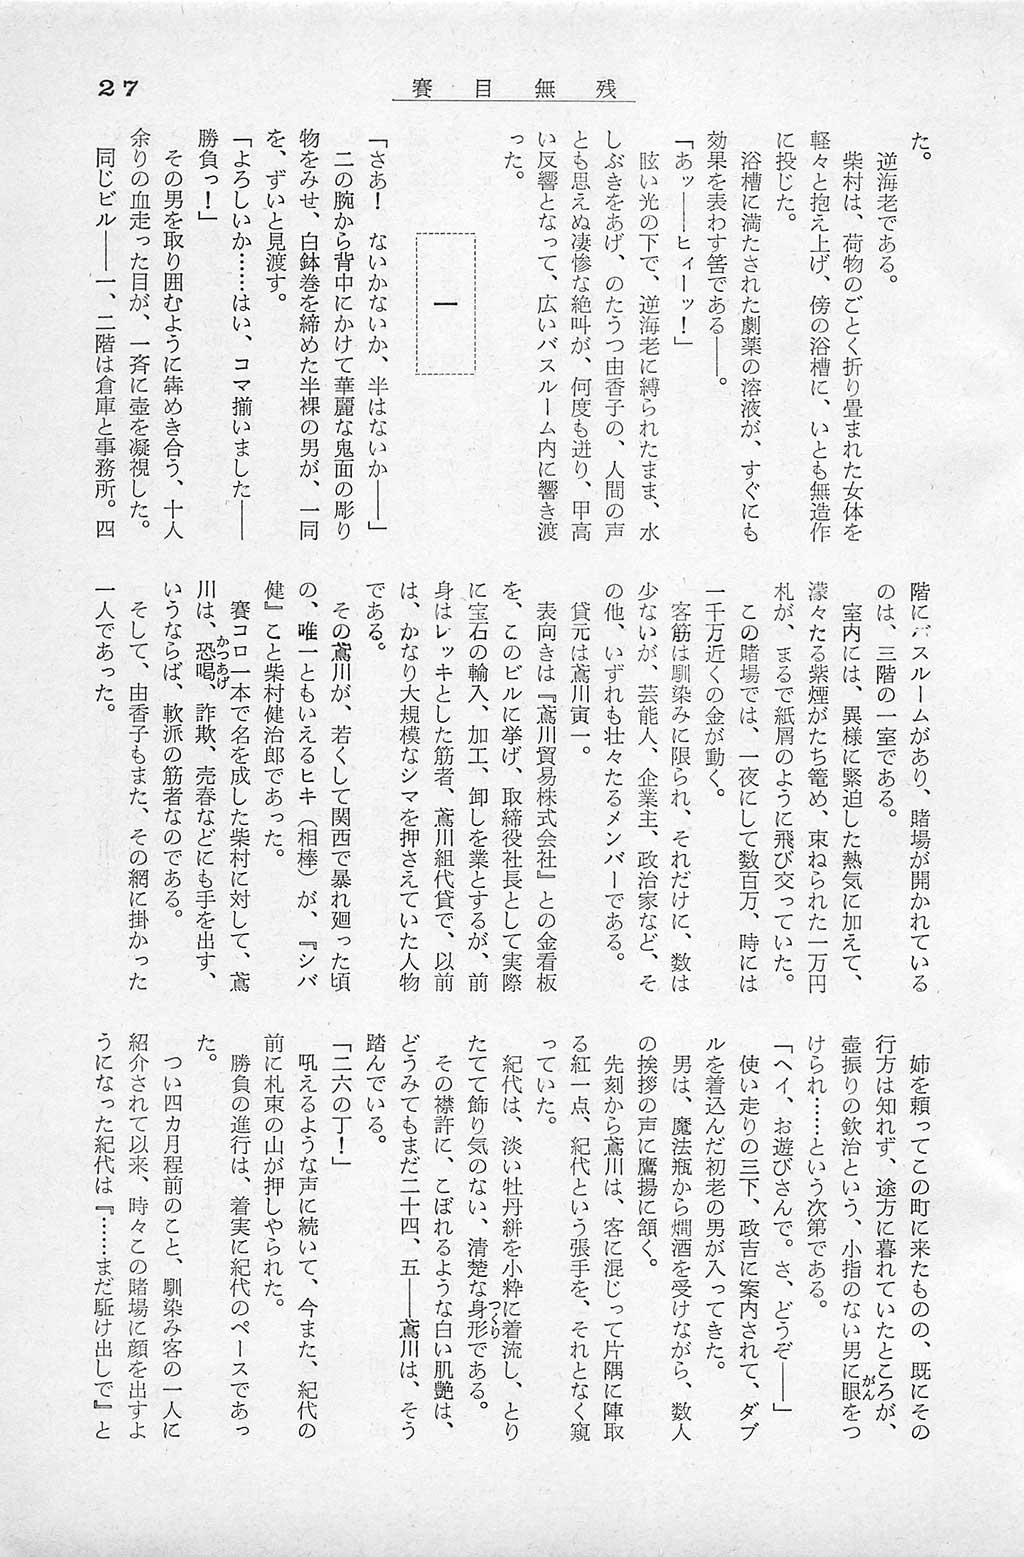 27
賽目無残
た。
逆海老である。
柴村は、荷物のごとく折り畳まれた女体を
軽々と抱え上げ、傍の浴槽に、いとも無造作
に投じた。
浴槽に満たされた劇薬の溶液が、すぐにも
効果を表わす筈である――。
「あッ――ヒィーッ！」
眩い光の下で、逆海老に縛られたまま、水
しぶきをあげ、のたうつ由香子の、人間の声
とも思えぬ凄惨な絶叫が、何度も迸り、甲高
い反響となって、広いバスルーム内に響き渡
った。
一
「さあ！　ないかないか、半はないか――」
二の腕から背中にかけて華麗な鬼面の彫り
物をみせ、白鉢巻を締めた半裸の男が、一同
を、ずいと見渡す。
「よろしいか……はい、コマ揃いました――
勝負っ！」
その男を取り囲むように犇めき合う、十人
余りの血走った目が、一斉に壺を凝視した。
同じビル――一、二階は倉庫と事務所。四
階にバスルームがあり、賭場が開かれている
のは、三階の一室である。
室内には、異様に緊迫した熱気に加えて、
濛々たる紫煙がたち篭め、束ねられた一万円
札が、まるで紙屑のように飛び交っていた。
この賭場では、一夜にして数百万、時には
一千万近くの金が動く。
客筋は馴染みに限られ、それだけに、数は
少ないが、芸能人、企業主、政治家など、そ
の他、いずれも壮々たるメンバーである。
貸元は鳶川寅一。
表向きは『鳶川貿易株式会社』との金看板
を、このビルに挙げ、取締役社長として実際
に宝石の輸入、加工、卸しを業とするが、前
身はレッキとした筋者、鳶川組代貸で、以前
は、かなり大規模なシマを押さえていた人物
である。
その鳶川が、若くして関西で暴れ廻った頃
の、唯一ともいえるヒキ（相棒）が、『シバ
健』こと柴村健治郎であった。
賽コロ一本で名を成した柴村に対して、鳶
川は、恐喝、詐欺、売春などにも手を出す、
かつあげ
いうならば、軟派の筋者なのである。
そして、由香子もまた、その網に掛かった
一人であった。
姉を頼ってこの町に来たものの、既にその
行方は知れず、途方に暮れていたところが、
壺振りの欽治という、小指のない男に眼をつ
がん
けられ……という次第である。
「ヘイ、お遊びさんで。さ、どうぞ――」
使い走りの三下、政吉に案内されて、ダブ
ルを着込んだ初老の男が入ってきた。
男は、魔法瓶から燗酒を受けながら、数人
の挨拶の声に鷹揚に頷く。
先刻から鳶川は、客に混じって片隅に陣取
る紅一点、紀代という張手を、それとなく窺
っていた。
紀代は、淡い牡丹絣を小粋に着流し、とり
たてて飾り気のない、清楚な身形である。
つくり
その襟許に、こぼれるような白い肌艶は、
どうみてもまだ二十四、五――鳶川は、そう
踏んでいる。
「二六の丁！」
吼えるような声に続いて、今また、紀代の
前に札束の山が押しやられた。
勝負の進行は、着実に紀代のペースであっ
た。
つい四カ月程前のこと、馴染み客の一人に
紹介されて以来、時々この賭場に顔を出すよ
うになった紀代は『……まだ駈け出しで』と